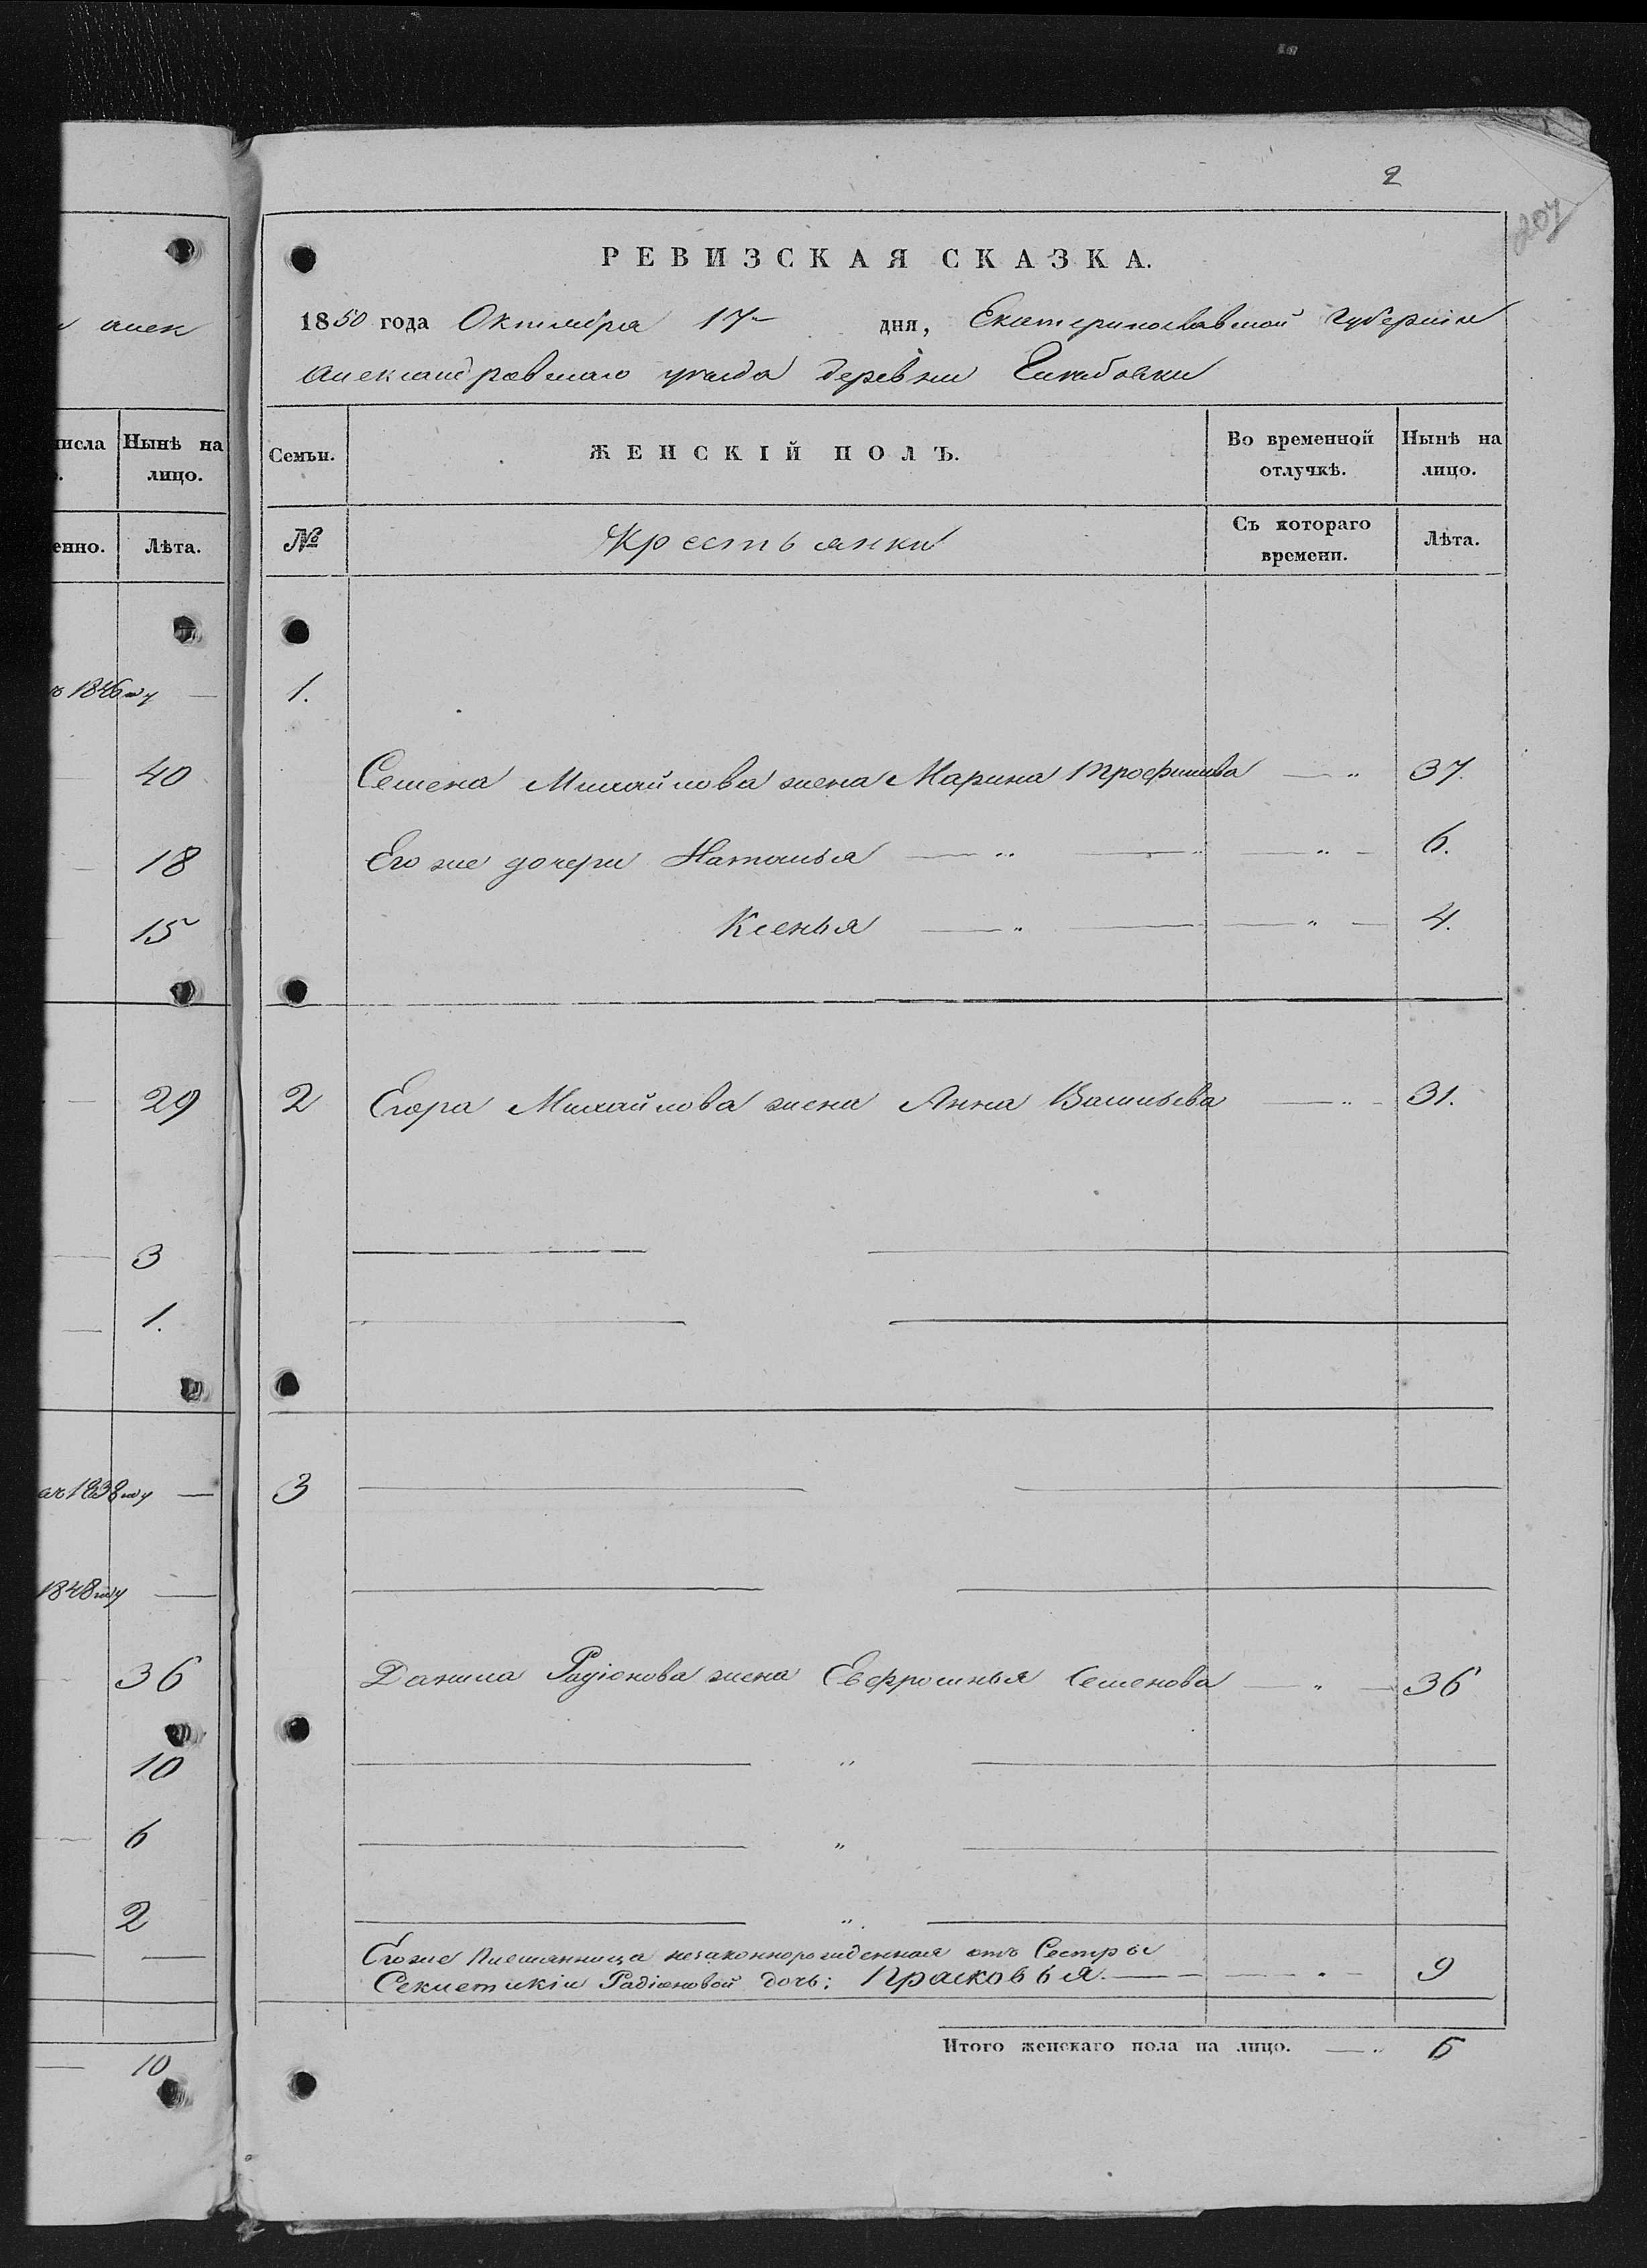 2
207
РЕВИЗСКАЯ СКАЗКА.
1850 года Октября 17 дня, Екатеринославской Губернiи
Александровскаго уезда деревни
Семьи.
ЖЕНСКIЙ ПОЛЪ.
Во временной отлучкѣ.
Нынѣ на лицо.
№
Крестьянки
Съ котораго времени.
Лѣта.
1.
Семена Михайлова жена Марина Трофимова — " 37.
Его же дочери Наталья — " — " — 6.
Ксенья — " — " — 4.
2 Егора Михайлова жена Анна Васильева — " — 31.
3
Данила Радiонова жена Евфросинья Семенова — " — 36
"
"
"
Его же племянница незаконнорожденная отъ Сестры
Радiоновой дочь: Прасковья. — 9
Итого женскаго пола на лицо. — " 6
алек
числа
Нынѣ на лицо.
енно.
Лѣта.
1846му —
40
18
15
29
3
1.
1838му —
1848му —
36
10
6
2
10